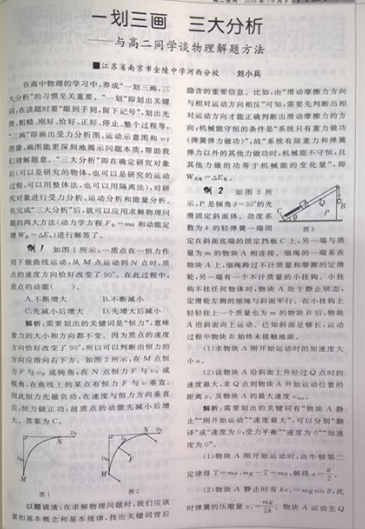 一划三画 三大分析
——与高二同学谈物理解题方法
■江苏省南京市金陵中学河西分校 刘小兵
在高中物理的学习中,养成“一划三画,三
大分析”的习惯至关重要。“一划”即划出关键
词,在读题时要“眼到手到,留下记号”,划出光
滑、粗糙、刚好、恰好、正好、停止、整个过程等。
“三画”即画出受力分析图、运动示意图和v-t
图像,画图能更深刻地揭示问题本质,帮助我
们理解题意。“三大分析”即在确定研究对象
后(可以是研究的物体,也可以是研究的运动
过程,可以用整体法,也可以用隔离法),对研
究对象进行受力分析、运动分析和能量分析。
在完成“三大分析”后,就可以应用求解物理问
题的两大方法(动力学方程F合=ma和动能定
理W合=ΔEk)进行解答了。
例1 如图1所示,一质点在一恒力作
用下做曲线运动,从M点运动到N点时,质
点的速度方向恰好改变了90°。在此过程中,
质点的动能( )。
A.不断增大 B.不断减小
C.先减小后增大 D.先增大后减小
解析:需要划出的关键词是“恒力”,意味
着力的大小和方向都不变。因为质点的速度
方向恰好改变了90°,所以可以判断出恒力的
方向应指向右下方。如图2所示,在M点恒
力F与v0成钝角,在N点恒力F与v1成
锐角,在曲线上的某点有恒力F与v垂直,
因此恒力先做负功,在速度与恒力方向垂直
后,恒力做正功,故质点的动能先减小后增
大。答案为C。
图1 图2
以题谈法:在求解物理问题时,我们应该
紧扣基本概念和基本规律,找出关键词背后
隐含的重要信息。比如,由“滑动摩擦力方向
与相对运动方向相反”可知,需要先判断出相
对运动方向才能正确判断出滑动摩擦力的方
向;机械能守恒的条件是“系统只有重力做功
(弹簧弹力做功)”,故“系统有除重力和弹簧
弹力以外的其他力做功时,机械能不守恒,且
其他力做的功等于机械能的变化量”,即
例2 如图3所
示,P是倾角θ=30°的光
滑固定斜面体。劲度系
数为k的轻弹簧一端固
图3
定在斜面底端的固定挡板C上,另一端与质
量为m的物块A相连接。细绳的一端系在
物块A上,细绳跨过不计质量和摩擦的定滑
轮,另一端有一个不计质量的小挂钩。小挂
钩不挂任何物体时,物块A处于静止状态,
定滑轮左侧的细绳与斜面平行。在小挂钩上
轻轻挂上一个质量也为m的物块B后,物块
A沿斜面向上运动。已知斜面足够长,运动
过程中物块B始终未接触地面。
(1)求物块A刚开始运动时的加速度大
小a。
(2)设物块A沿斜面上升经过Q点时的
速度最大,求Q点到物块A开始运动位置的
距离x,及物块A的最大速度vmax。
解析:需要划出的关键词有“物块A静
止”“刚开始运动”“速度最大”,可以分别“翻
译”成“速度为0,受力平衡”“速度为0”“加速
度为0”。
(1)物块A刚开始运动时,由牛顿第二
定律得T=ma,mg-T=ma,解得a=g/2。
(2)物块A静止时有kx1=mgsinθ,此
时弹簧的压缩量x1=mg/2k,物块A运动至Q